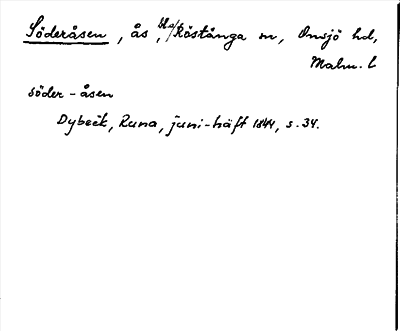 Söderåsen, ås, bl.a/Röstånga sn, Onsjö hd,
Malm. l
söder-åsen
Dybeck, Runa, juni-häft 1844, s. 34.